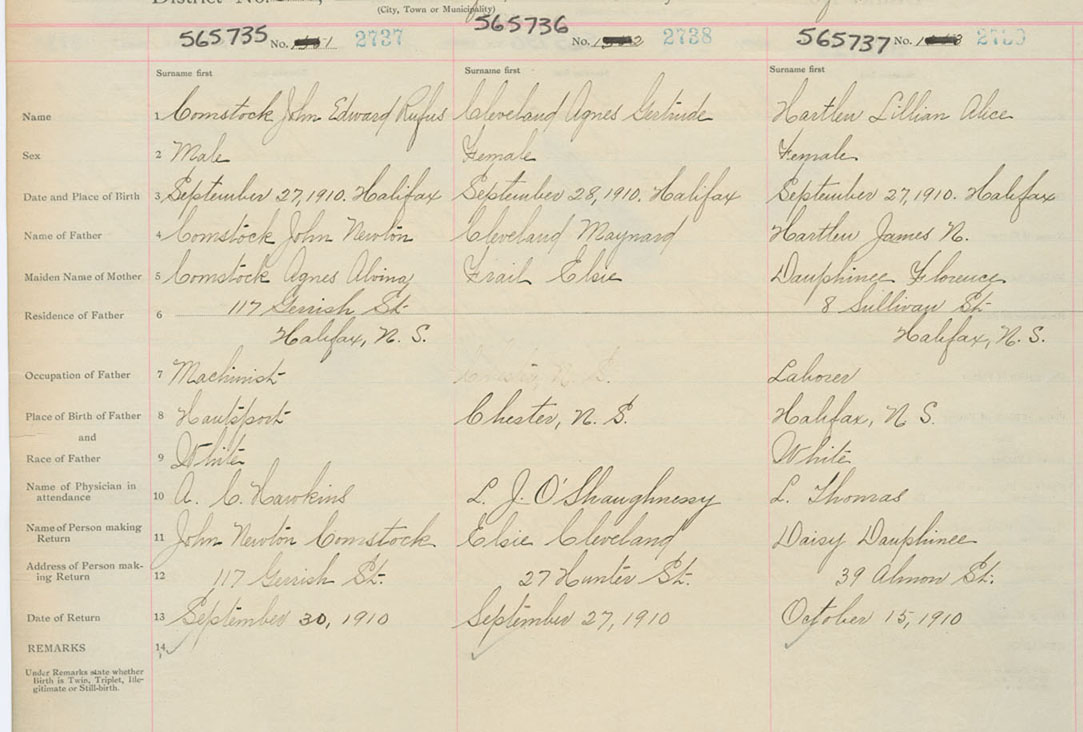 District No.
(City, Town or Municipality)
565735 No. 2737 565736 No. 2738 565737 No. 2739
Surname first Surname first Surname first
Name 1 Comstock John Edward Rufus Cleveland Agnes Gertrude Hartlen Lillian Alice
Sex 2 Male Female Female
Date and Place of Birth 3 September 27, 1910. Halifax September 28, 1910. Halifax September 27, 1910. Halifax
Name of Father 4 Comstock John Newton Cleveland Maynard Hartlen James N.
Maiden Name of Mother 5 Comstock Agnes Frail Elsie Dauphinee Florence
117 Gerrish St. 8 Sullivan St.
Residence of Father 6
Halifax, N. S. Halifax, N. S.
Occupation of Father 7 Machinist Laborer
Place of Birth of Father 8 Hantsport Chester, N. S. Halifax, N S.
and
Race of Father 9 White White
Name of Physician in
attendance 10 A. C. Hawkins L. J. O'Shaughnessy L. Thomas
Name of Person making
Return 11 John Newton Comstock Elsie Cleveland Daisy Dauphinee
Address of Person mak-
ing Return 12 117 Gerrish St. 27 Hunter St. 39 Almon St.
Date of Return 13 September 30, 1910 September 27, 1910 October 15, 1910
REMARKS 14
Under Remarks state whether
Birth is Twin, Triplet, Ille-
gitimate or Still-birth.